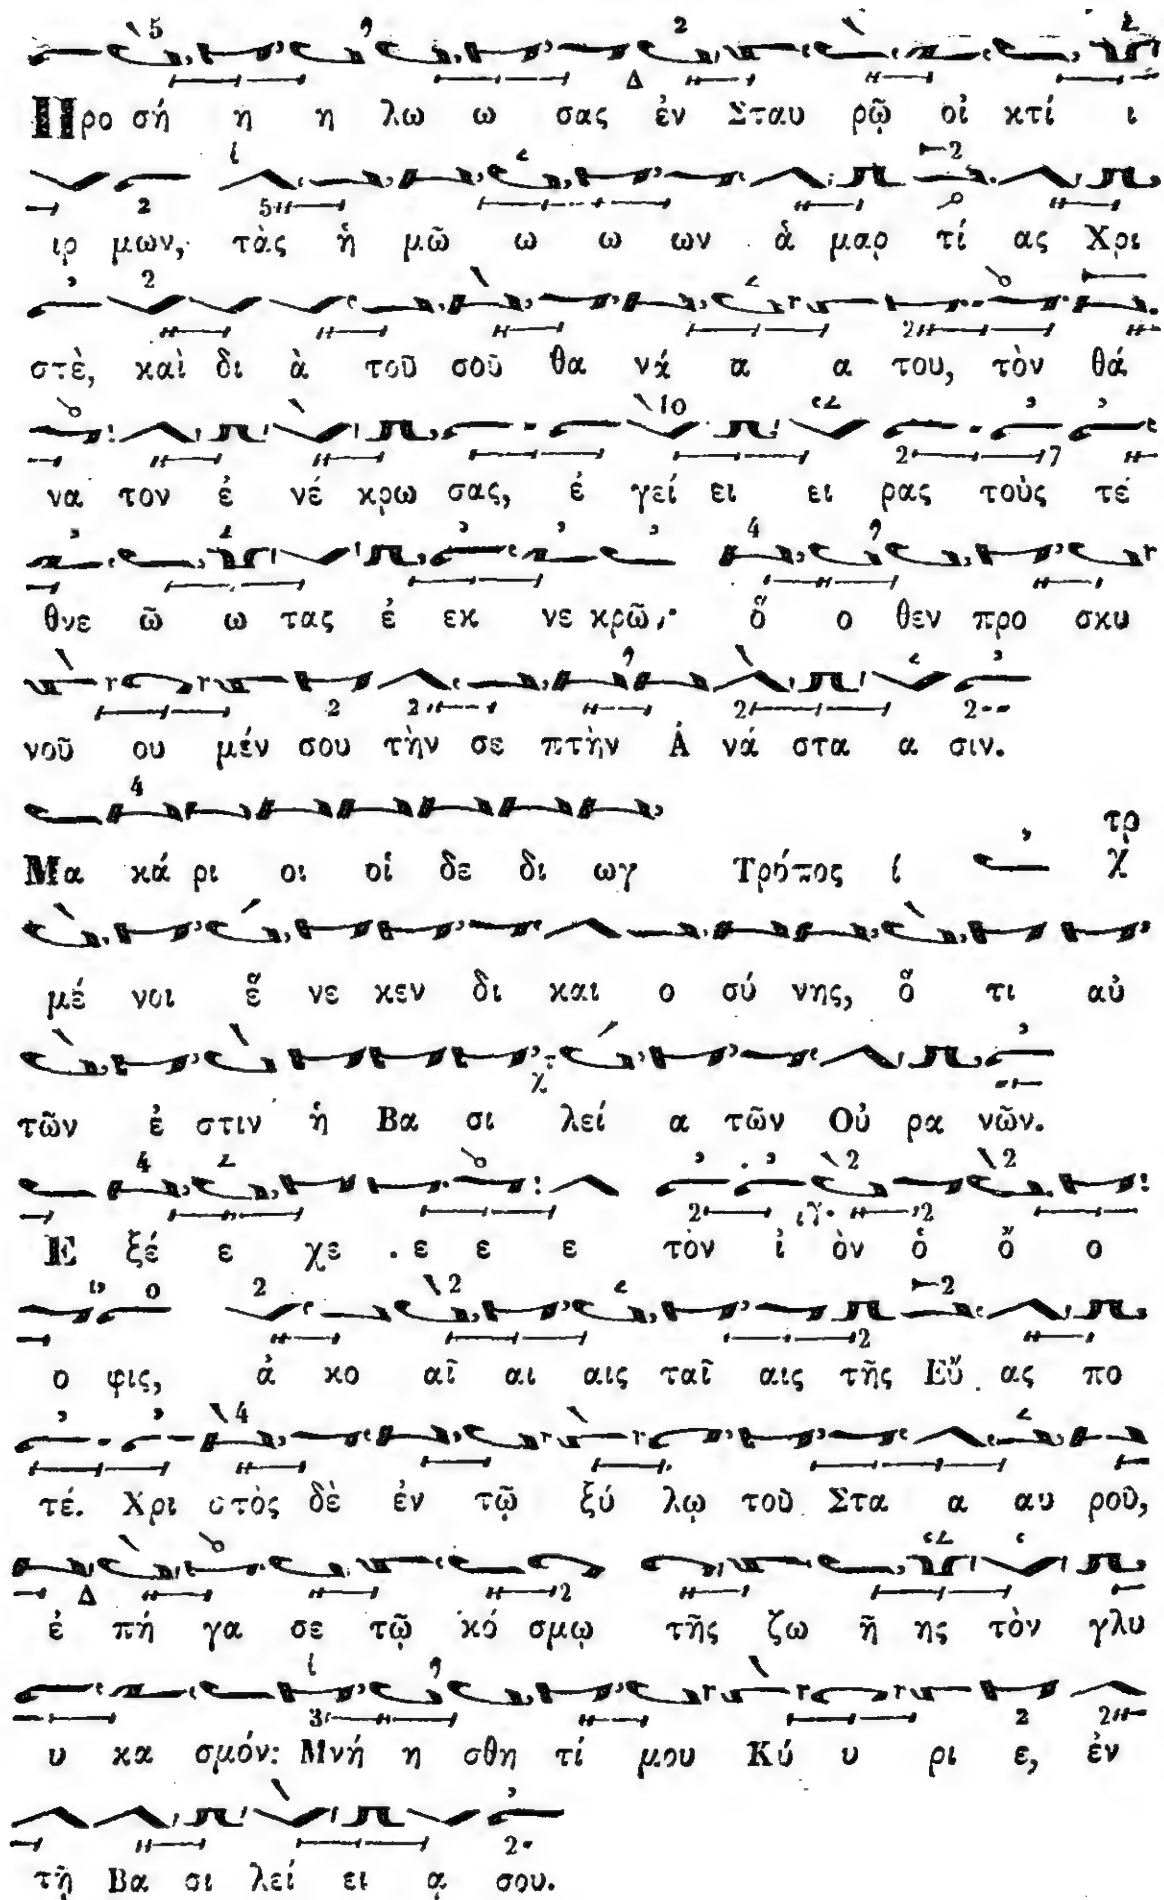 Προ σή η η λω ω σας ἐν Σταυ ρῷ οἰ κτί ι
ιρ μων, τὰς ἡ μῶ ω ω ων ἁ μαρ τί ας Χρι
στὲ, καὶ δι ὰ τοῦ σοῦ θα νά α α του, τὸν θά
να τον ἐ νέ κρω σας, ἐ γεί ει ει ρας τοὺς τε
θνε ῶ ω τας ἐ εκ νε κρῶν· ὅ ο θεν προ σκυ
νοῦ ου μέν σου τὴν σε πτὴν Ἀ νά στα α σιν.
Μα κά ρι οι οἱ δε δι ωγ Τρόπος
μέ νοι ἕ νε κεν δι και ο σύ νης, ὅ τι αὐ
τῶν ἐ στιν ἡ Βα σι λεί α τῶν Οὐ ρα νῶν.
Ε ξέ ε χε ε ε ε τὸν ἰ ὸν ὁ ὄ ο
ο φις, ἀ κο αῖ αι αις ταῖ αις τῆς Εὔ ας πο
τέ. Χρι στὸς δὲ ἐν τῷ ξύ λῳ τοῦ Στα α αυ ροῦ,
ἐ πή γα σε τῷ κό σμῳ τῆς ζω ῆ ης τὸν γλυ
υ κα σμόν: Μνή η σθη τί μου Κύ υ ρι ε, ἐν
τῇ Βα σι λεί ει ᾳ σου.